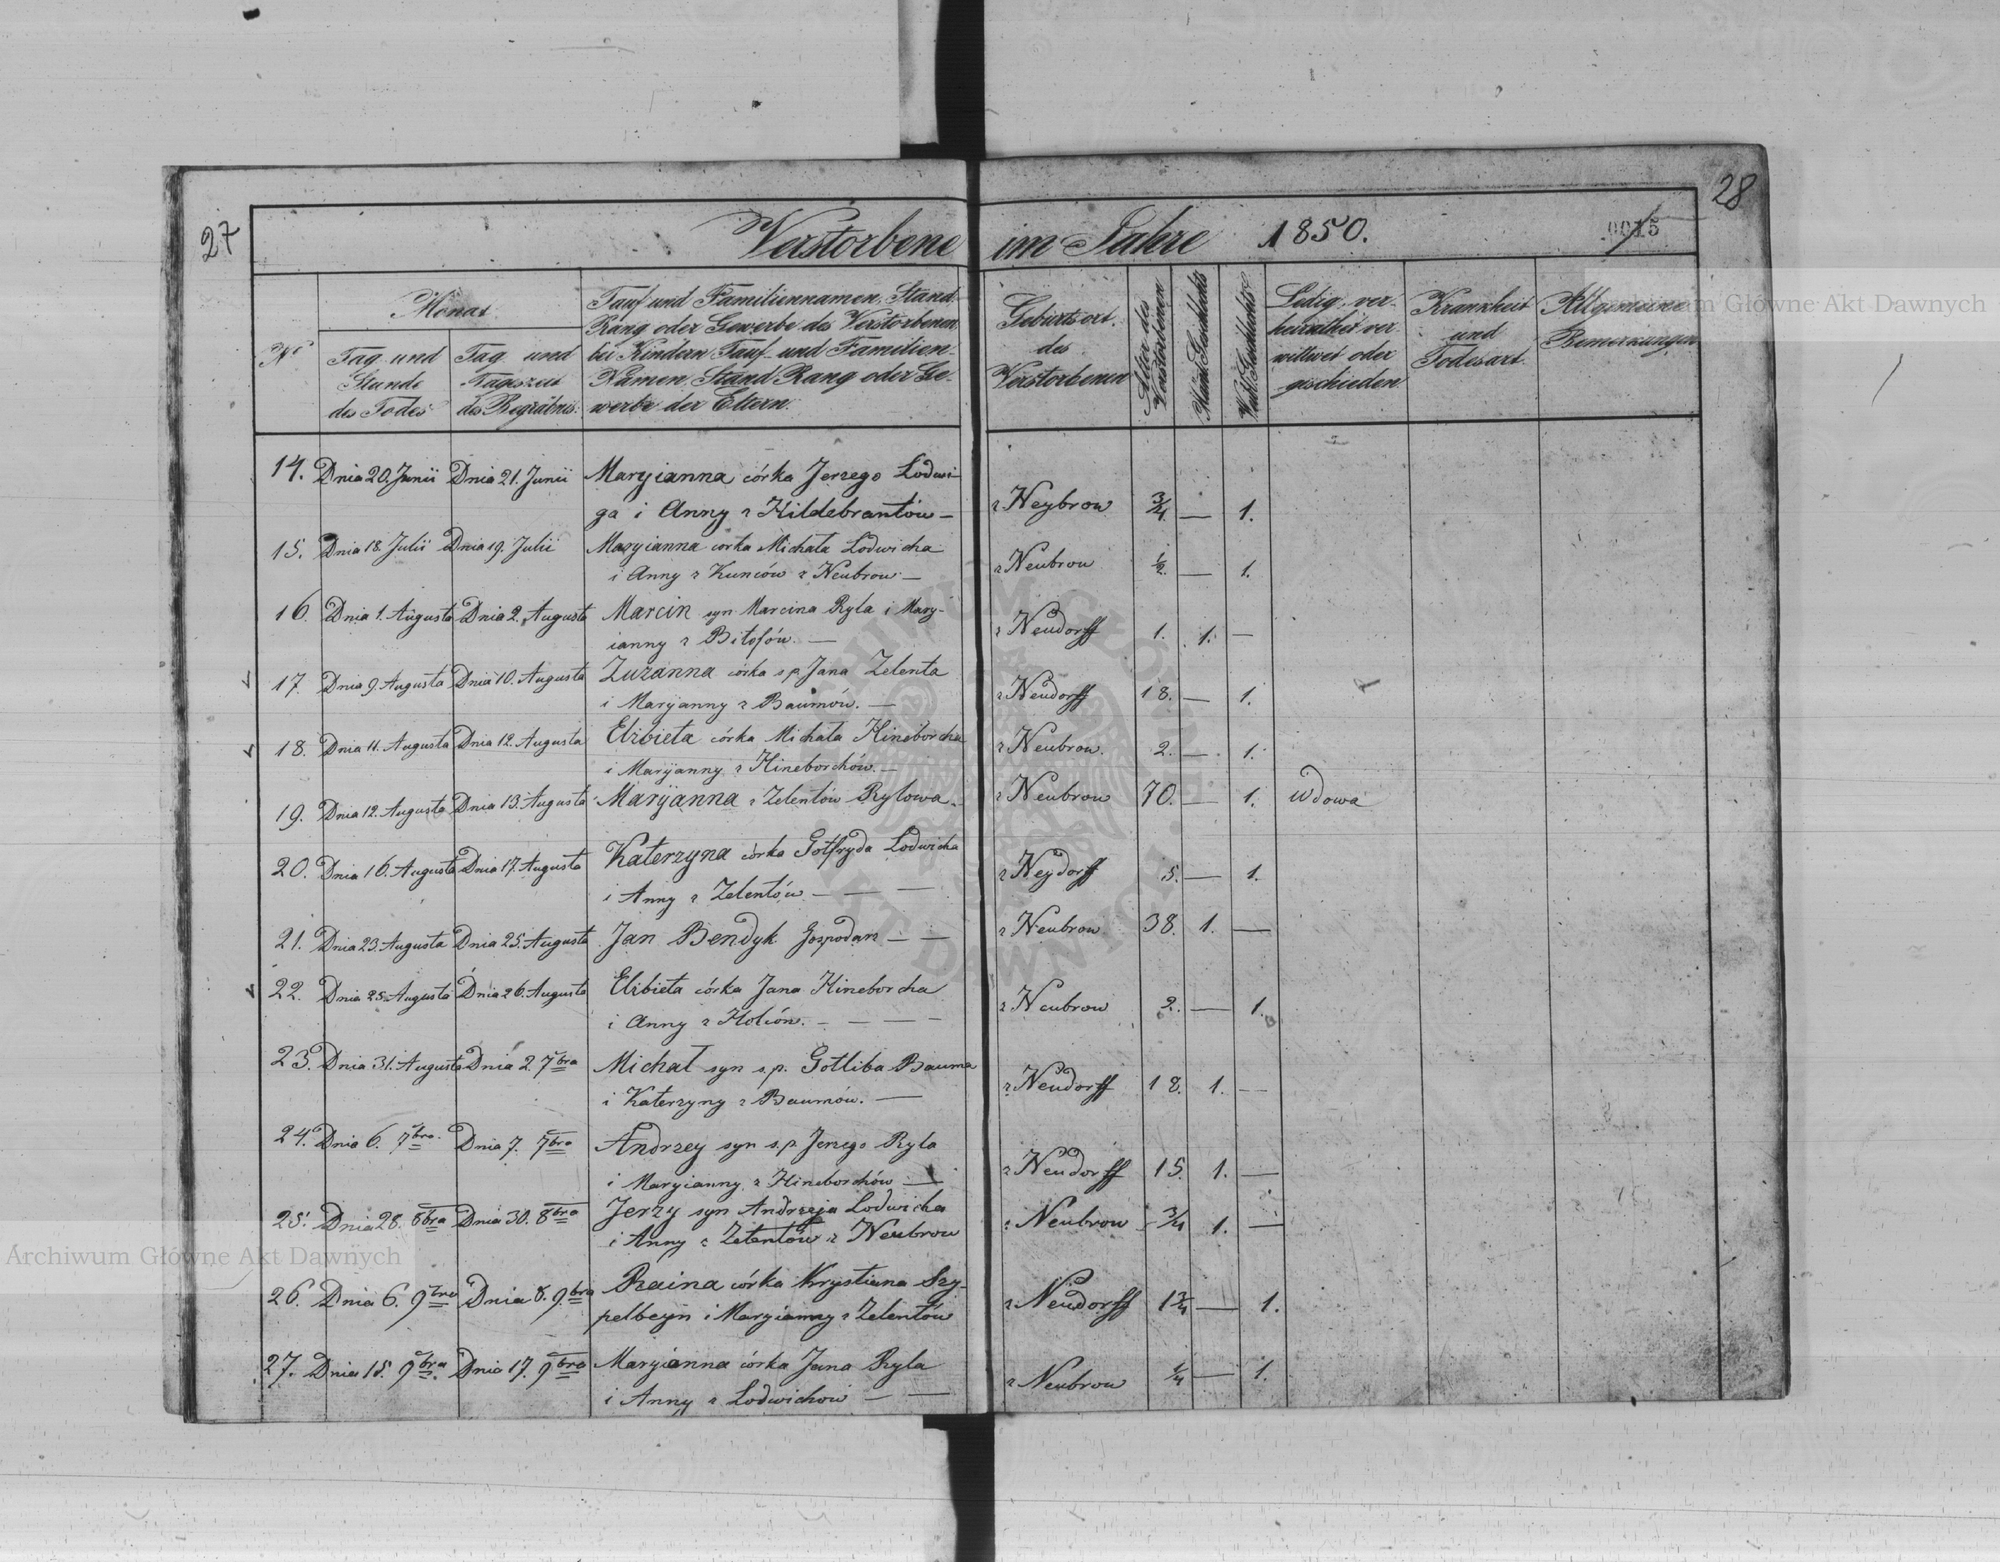 27
28
Verstorbene im Jahre 1850.
0015
Nº
Monat
Tag und Stunde des Todes
Tag und Tageszeit des Begräbnis.
Tauf und Familiennamen, Stand
Rang oder Gewerbe des Verstorbenen
bei Kindern Tauf- und Familien-
Namen, Stand Rang oder Ge-
werbe der Eltern.
Geburtsort.
des
Verstorbenen
Alter des Verstorbenen
Männl. Geschlechts
Weibl. Geschlechts
Ledig, ver-
heirathet ver
wittwet oder
geschieden
Krankheit
und
Todesart.
Allgemeine
Bemerkungen
14. Dnia 20. Junii Dnia 21. Junii Maryianna córka Jerzego Lodwi-
ga i Anny z Hildebrantów — z Neybrow 3/4 — 1.
15. Dnia 18. Julii Dnia 19. Julii Maryianna corka Michała Lodwicha
i Anny z Kunców z Neubrow — z Neubrow 1/2. — 1.
16. Dnia 1. Augusta Dnia 2. Augusta Marcin syn Marcina Ryla i Mary-
ianny z Bitofów. — z Neudorff 1. 1. —
17 Dnia 9. Augusta Dnia 10. Augusta Zuzanna córka s p Jana Zelenta
i Maryanny z Baumów. — z Neudorff 18. — 1.
18. Dnia 11. Augusta Dnia 12. Augusta Elzbieta córka Michała Hineborcha
i Maryanny z Hineborchów. — z Neubrow. 2. — 1.
19. Dnia 12. Augusta Dnia 13. Augusta Maryanna z Zelentów Rylowa. z Neubrow 70. — 1. Wdowa
20. Dnia 16. Augusta Dnia 17. Augusta Katerzyna córka Gotfryda Lodwicha
i Anny z Zelentów — — — z Neydorff 5. — 1.
21. Dnia 23. Augusta Dnia 25. Augusta Jan Bendyk Gospodarz — — z Neubrow 38. 1. —
22. Dnia 25. Augusta Dnia 26. Augusta Elzbieta córka Jana Hineborcha
i Anny z Holców. — — — — z Neubrow 2. — 1.
23. Dnia 31. Augusta Dnia 2. 7bra Michał syn s.p. Gotliba Bauma
i Katerzyny z Baumów. — z Neudorff 18. 1. —
24. Dnia 6. 7bra. Dnia 7. 7bra Andrzey syn s.p Jerzego Ryla
i Maryianny z Hineborchów — z Neudorff 15. 1. —
25. Dnia 28. 8bra Dnia 30. 8bra Jerzy syn Andrzeja Lodwicha
i Anny z Zelentów z Neubrow z Neubrow 3/4 1. —
26. Dnia 6. 9bra Dnia 8. 9bra Raina córka Krystiana Szy-
pelbeyn i Maryianny z Zelentów z Neudorff — 1.
27. Dnia 15. 9bra Dnia 17. 9bra Maryianna córka Jana Ryla
i Anny z Lodwichow — — z Neubrow 1/4 — 1.
Archiwum Główne Akt Dawnych
Archiwum Główne Akt Dawnych
ARCHIWUM GŁÓWNE AKT DAWNYCH